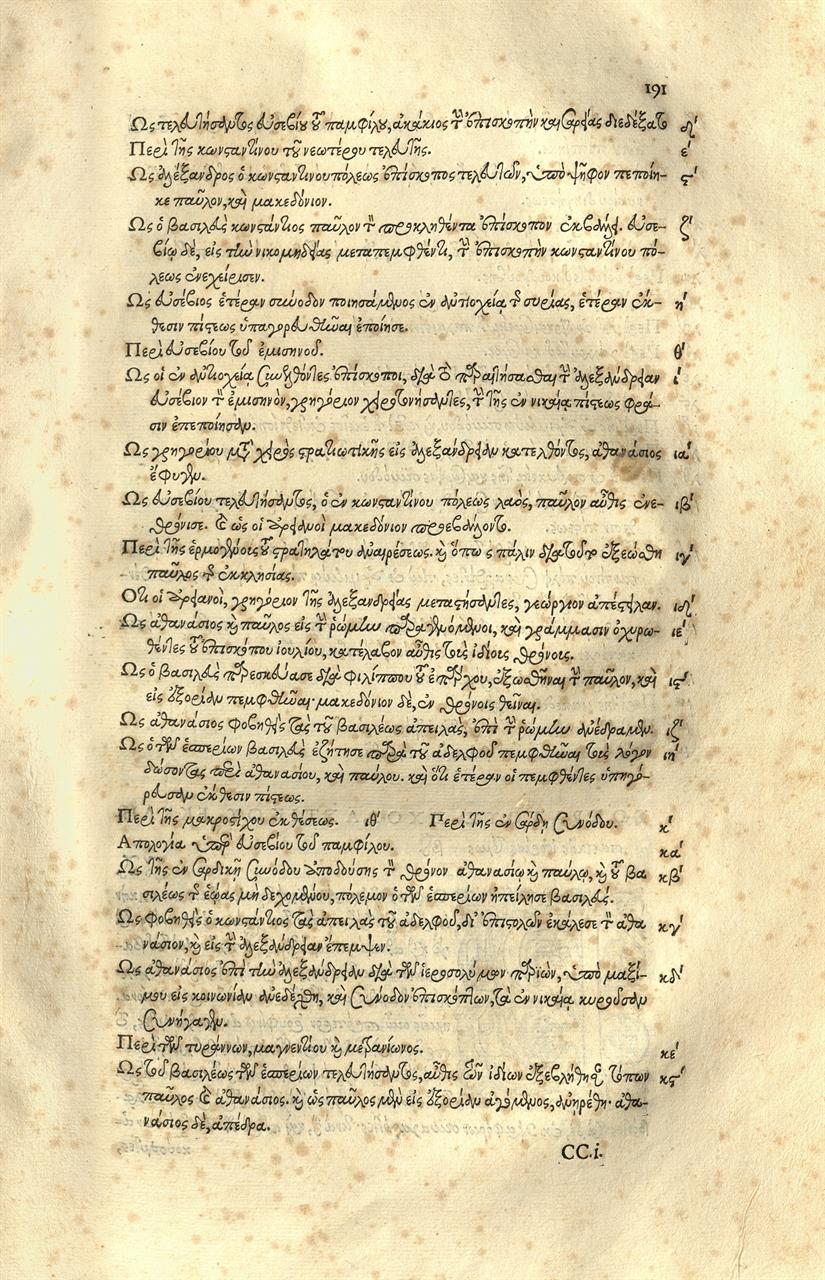 191
Ὡς τελευτήσαντος εὐσεβίου τοῦ παμφίλου, ἀκάκιος τὴν ἐπισκοπὴν καισαρείας διεδέξατο δʹ
Περὶ τῆς κωνσταντίνου τοῦ νεωτέρου τελευτῆς. εʹ
Ὡς ἀλέξανδρος ὁ κωνσταντινουπόλεως ἐπίσκοπος τελευτῶν, ὑπὸ ψῆφον πεποίη- ϛʹ
κε παῦλον, καὶ μακεδόνιον.
Ὡς ὁ βασιλεὺς κωνστάντιος παῦλον τὸν προκληθέντα ἐπίσκοπον ἐκβαλὼν. εὐσε- ζʹ
βίῳ δὲ, εἰς τὴν νικομηδείας μεταπεμφθέντι, τὴν ἐπισκοπὴν κωνσταντίνου πό-
λεως ἐνεχείρισεν.
Ὡς εὐσέβιος ἑτέραν σύνοδον ποιησάμενος ἐν ἀντιοχείᾳ τῆς συρίας, ἑτέραν ἔκ- ηʹ
θεσιν πίστεως ὑπαγορευθῆναι ἐποίησε.
Περὶ εὐσεβίου τοῦ ἐμισηνοῦ. θʹ
Ὡς οἱ ἐν ἀντιοχείᾳ συνελθόντες ἐπίσκοποι, διὰ τὸ παραιτήσασθαι τὴν ἀλεξάνδρειαν ιʹ
εὐσέβιον τὸν ἐμισηνὸν, γρηγόριον χειροτονήσαντες, τὴν τῆς ἐν νικαίᾳ πίστεως φρά-
σιν ἐπεποίησαν.
Ὡς γρηγορίου μετὰ χειρὸς στρατιωτικῆς εἰς ἀλεξάνδρειαν κατελθόντος, ἀθανάσιος ιαʹ
ἔφυγεν.
Ὡς εὐσεβίου τελευτήσαντος, ὁ ἐν κωνσταντίνου πόλεως λαὸς, παῦλον αὖθις ἐνε- ιβʹ
θρόνισε. καὶ ὡς οἱ ἀρειανοὶ μακεδόνιον προεβάλοντο.
Περὶ τῆς ἑρμογένους τοῦ στρατηλάτου ἀναιρέσεως. καὶ ὅπως πάλιν διὰ τοῦτο ἐξεώθη ιγʹ
παῦλος τῆς ἐκκλησίας.
Ὅτι οἱ ἀρειανοὶ, γρηγόριον τῆς ἀλεξανδρείας μεταστήσαντες, γεώργιον ἀπέστειλαν. ιδʹ
Ὡς ἀθανάσιος καὶ παῦλος εἰς τὴν ῥώμην παραγενόμενοι, καὶ γράμμασιν ὀχυρω- ιεʹ
θέντες τοῦ ἐπισκόπου ἰουλίου, κατέλαβον αὖθις τοὺς ἰδίους θρόνους.
Ὡς ὁ βασιλεὺς παρεσκεύασε διὰ φιλίππου τοῦ ἐπάρχου, ἐξωθῆναι τὸν παῦλον, καὶ ιϛʹ
εἰς ἐξορίαν πεμφθῆναι· μακεδόνιον δὲ, ἐν θρόνοις θεῖναι.
Ὡς ἀθανάσιος φοβηθεὶς τὰς τοῦ βασιλέως ἀπειλὰς, ἐπὶ τὴν ῥώμην ἀνέδραμεν. ιζʹ
Ὡς ὁ τῶν ἑσπερίων βασιλεὺς ἐζήτησε παρὰ τοῦ ἀδελφοῦ πεμφθῆναι τοὺς λόγον ιηʹ
δώσοντας περὶ ἀθανασίου, καὶ παύλου. καὶ ὅτι ἑτέραν οἱ πεμφθέντες ὑπηγό-
ρευσαν ἔκθεσιν πίστεως.
Περὶ τῆς μακροστίχου ἐκθέσεως. ιθʹ Περὶ τῆς ἐν σαρδικῇ συνόδου. κʹ
Ἀπολογία ὑπὲρ εὐσεβίου τοῦ παμφίλου. καʹ
Ὡς τῆς ἐν σαρδικῇ συνόδου ἀποδούσης τὸν θρόνον ἀθανασίῳ καὶ παύλῳ, καὶ τοῦ βα κβʹ
σιλέως τῆς ἑῴας μὴ δεχομένου, πόλεμον ὁ τῶν ἑσπερίων ἠπείλησε βασιλεύς.
Ὡς φοβηθεὶς ὁ κωνστάντιος τὰς ἀπειλὰς τοῦ ἀδελφοῦ, δι' ἐπιστολῶν ἐκάλεσε τὸν ἀθα κγʹ
νάσιον, καὶ εἰς τὴν ἀλεξάνδρειαν ἔπεμψεν.
Ὡς ἀθανάσιος ἐπὶ τὴν ἀλεξάνδρειαν διὰ τῶν ἱεροσολύμων παριὼν, ὑπὸ μαξί- κδʹ
μου εἰς κοινωνίαν ἀνεδέχθη, καὶ σύνοδον ἐπισκόπων, τὰ ἐν νικαίᾳ κυροῦσαν
συνήγαγεν.
Περὶ τῶν τυράννων, μαγνεντίου καὶ μετρανίωνος. κεʹ
Ὡς τοῦ βασιλέως τῶν ἑσπερίων τελευτήσαντος, αὖθις τῶν ἰδίων ἐξεβλήθησαν τόπων κϛʹ
παῦλος καὶ ἀθανάσιος. καὶ ὡς παῦλος μὲν εἰς ἐξορίαν ἀγόμενος, ἀνῃρέθη· ἀθα-
νάσιος δὲ, ἀπέδρα.
CC.i.